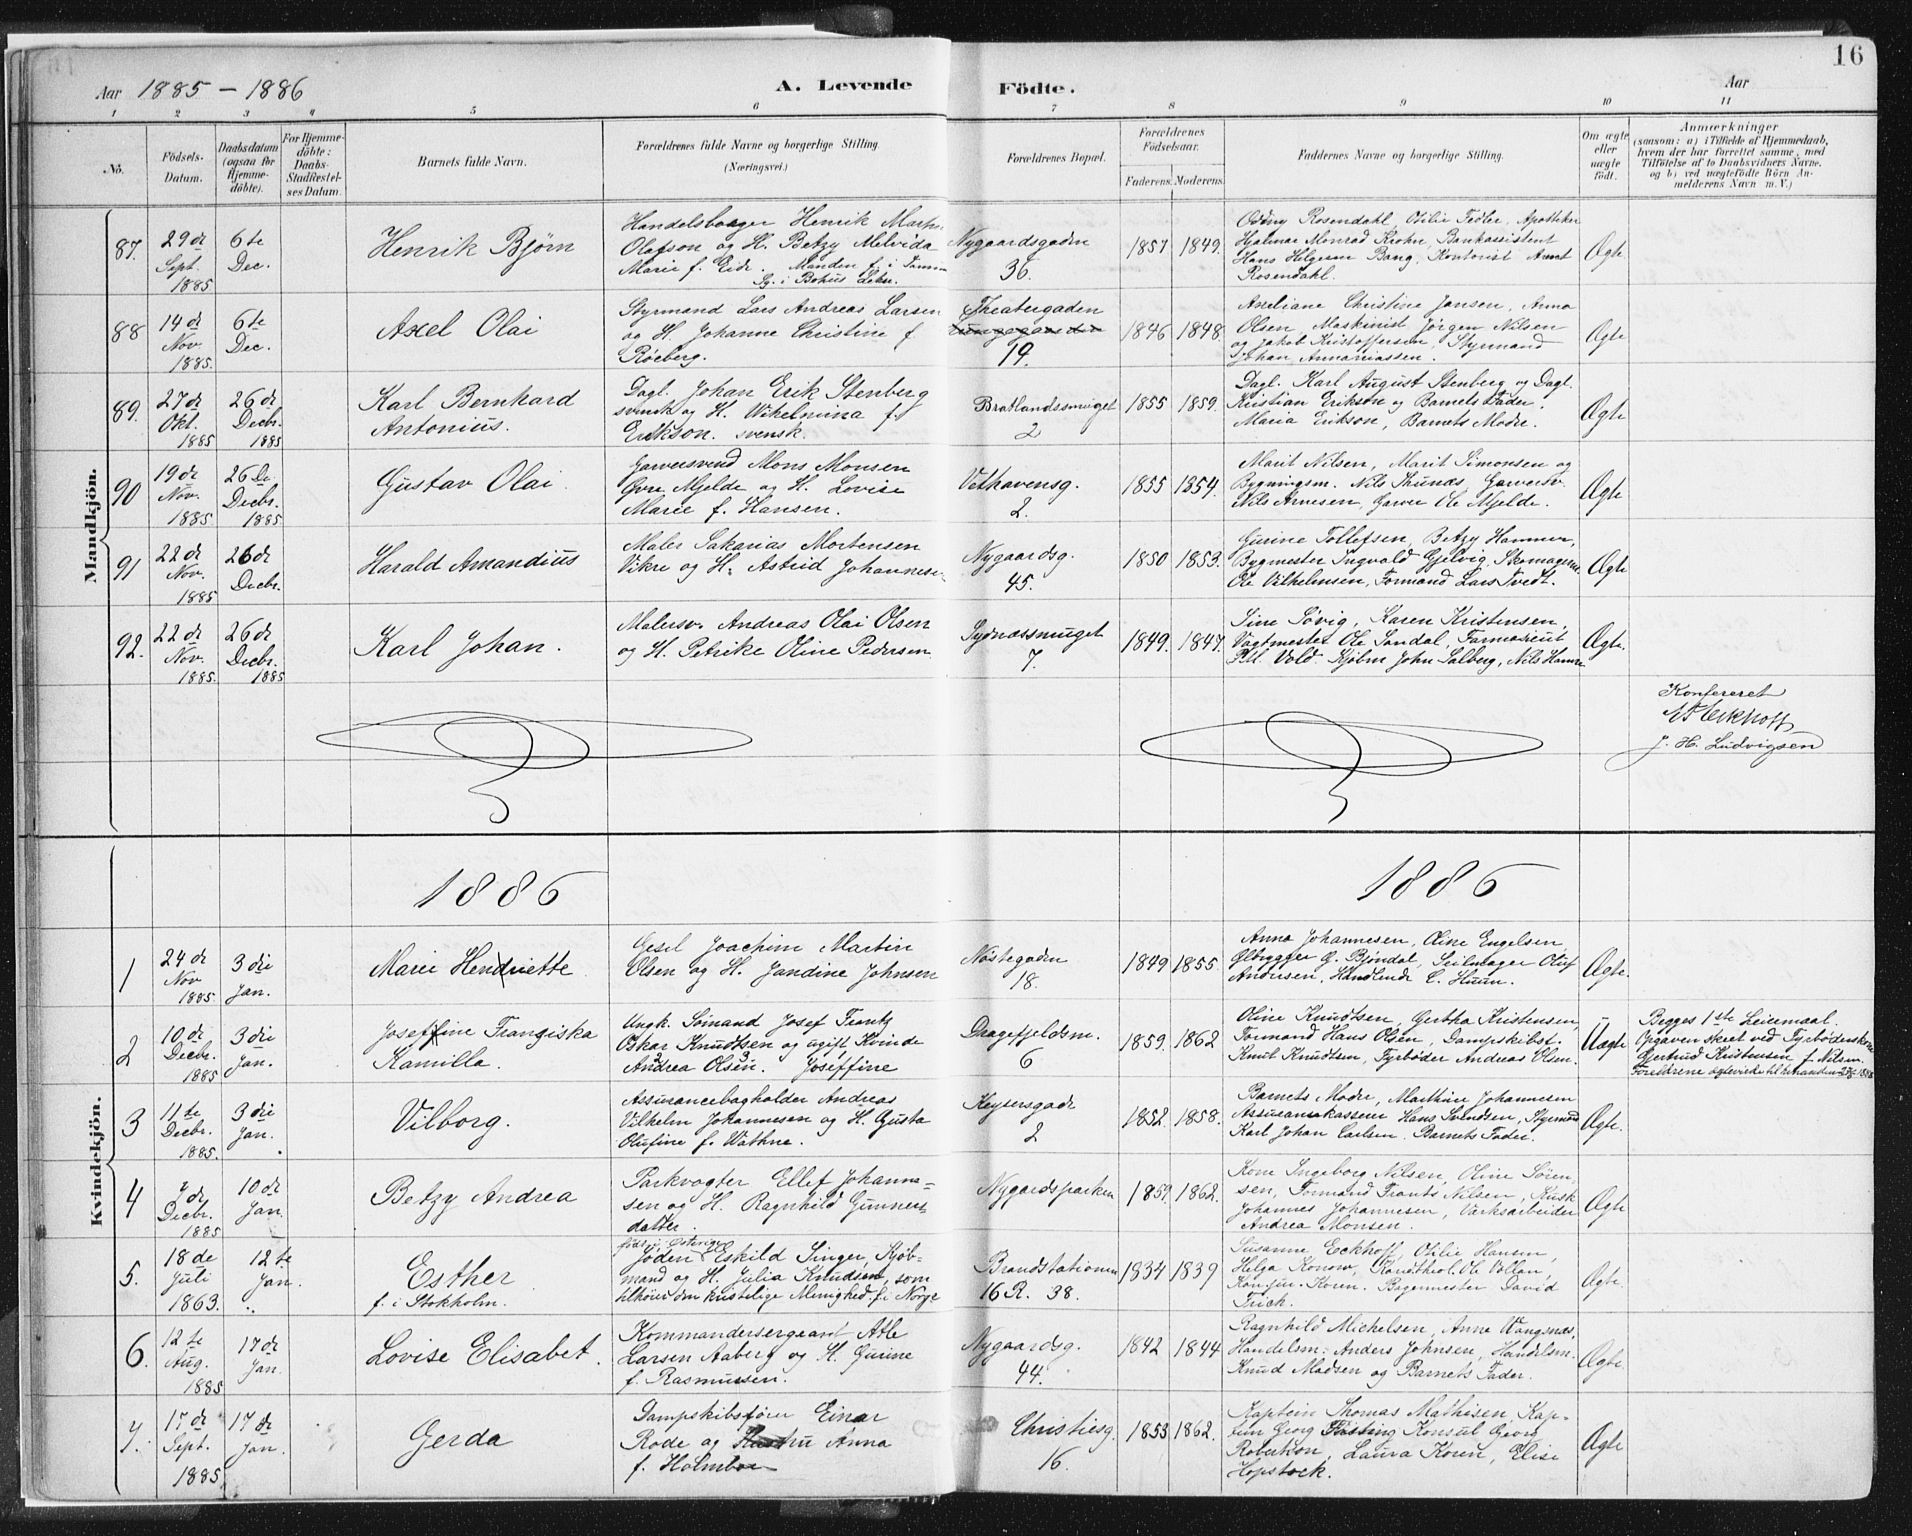 16
Aar 1885 – 1886
A. Levende Födte.
Aar
1 2 3 4 5 6 7 8 9 10 11
No.
Födsels-Datum.
Daabsdatum (ogsaa for Hjemme-döbte).
For Hjemme-döbte: Daabs-Stadfæstel-ses Datum.
Barnets fulde Navn.
Forældrenes fulde Navne og borgerlige Stilling (Næringsvei.)
Forældrenes Bopæl.
Forældrenes Födselsaar.
Faderens. Moderens.
Faddernes Navne og borgerlig Stilling.
Om ægte eller uægte födt.
Anmærkninger
(saasom: a) i Tilfælde af Hjemmedaab,
hvem der har forrettet samme, med
Tilföielse af to Daabsvidners Navne,
og b) ved uægtefödte Börn An-
melderens Navn m. V.)
Mandkjön.
87. 29 de Sept. 1885 6te Dec. Henrik Bjørn
Handelsborger Henrik Marh.
Olafson og H. Betzy Melvida
Marie f. Eide. Manden f. i Tanum
Sg. i Bohus Lehn.
Nygaardsgaden 36. 1857 1849.
Oddny Rosendahl, Otilie Fedler, Apotheker
Hjalmar Monrad Krohn, Bankassistent
Hans Helgesen Bang, Kontorist Arent
Rosendahl.
Ægte
88 14 de Nov 1885. 6te Dec. Axel Olai
Styrmand Lars Andreas Larsen
og H. Johanne Christine f.
Røeberg.
Theatergaden 19. 1846 1848.
Axeliane Christine Janson, Anna
Olsen, Maskinist Jörgen Nilsen
og Jakob Kristoffersen, Styrmand
Johan Annaniassen.
Ægte
89. 27 de Okt. 1885 26 de Decbr. 1885 Karl Bernhard Antonius.
Dagl. Johan Erik Stenberg
svensk og H. Vilhelmina f.
Erikson. svensk.
Bratlandssmuget 2 1855 1859.
Dagl. Karl August Stenberg og Dagl.
Kristian Erikson og Barnets Fader.
Maria Erikson, Barnets Moder.
Ægte
90 19 de Nov. 1885 26 De Decbr. 1885 Gustav Olai.
Garversvend Mons Monsen
Øvre Mjelde og H. Lovise
Marie f. Hansen.
Vethavensg. 2. 1855 1854.
Marit Nilsen, Marit Simonsen og
Bygningsm. Nils Thunæs, Garversv.
Nils Arnesen, Garver Ole Mjelde.
Ægte
91 22 de Nov. 1885 26 de Decbr. Harald Amandius
Maler Sakarias Mortensen
Vikre og H. Astrid Johannesen
Nygaardsg. 45. 1850 1853.
Gurine Tollefsen, Betzy Hammer,
Bygmester Ingvald Gjelvig, Skomagerm.
Ole Vilhelmsen, Formand Lars Tvedt.
Ægte
92. 22 de Nov. 1885. 26 de Decbr. 1885 Karl Johan.
Malersv. Andreas Olai Olsen
og H. Petrike Oline Pedersen.
Sydnæssmuget 7. 1849. 1847.
Sine Søvig, Karen Kristensen,
Vagtmester Ole Sandal, Farmaceut
P.M. Vold. Kjøbm John Solberg, Nils Hamre
Ægte.
Konfereret
Eckhoff
J. H. Ludvigsen
1886 1886
Kvindekjön.
1 24 de Nov 1885. 3 die Jan. Marie Henriette
Gesel Joachim Martin
Olsen og H. Jandine Johnsen
Nøstegaden 18. 1849 1855.
Anna Johannesen, Oline Engelsen,
Ølbrygger G. Bjöndal, Seilmager Oluf
Andersen. Handlende C. Huun.
Ægte.
2 10 de Decbr. 1885 3 die Jan. Joseffine Franziska Kamilla.
Ungk. Sømand Josef Frantz
Oskar Knudtsen og ugift Kvinde
Andrea Olsen. Joseffine
Draggefjeldsm. 6 1859. 1862
Oline Knudtsen, Gertha Kristensen,
Formand Hans Olsen, Dampskibst.
Knut Knudtsen, Fyrbøder Andreas Olsen.
Uægte
Begges 1ste Leiermaal.
Opgaven skeet ved Fyrbøderskone
Gjertrud Kristensen f. Nilsen.
3 11 te Decbr. 1885. 3 die Jan. Vilborg.
Assurancebogholder Andreas
Vilhelm Johannesen og H. Gusta
Olufine f. Wathne.
Keysersgade 2 1852. 1858.
Barnets Moder, Marthine Johannesen
Assurancekasserer Hans Svendsen, Styrmand
Karl Johan Carlsen. Barnets Fader.
Ægte.
4 7 de Decbr. 1885 10 de Jan. Betzy Andrea
Parkvogter Ellef Johanne-
sen og H. Ragnhild Gunners
datter.
Nygaardsparken 1859. 1862.
Kone Ingeborg Nilsen, Oline Søren-
sen, Formand Frants Nilsen, Kusk
Johannes Johannesen, Værksarbeider
Andrea Monsen.
Ægte
5. 18 de Juli 1863. 12 te Jan. Esther f. i Stokholm.
født i Østerige
Jøden Eskild Singer, Kjøb-
mand og H. Julia Knudsen, som
tilhører den kristelige Menighed f. i Norge
Brandstationen 16 R. 38. 1834 1839
Susanne Eckhoff, Otilie Hansen,
Helga Konow, Kand.theol. Ole Vollan
Konsun. Koren. Bagermester David
Frick.
Ægte
6. 12 te Aug. 1885 17 de Jan. Lovise Elisabet.
Kommandersergeant Atle
Larsen Aaberg og H. Gurine
f. Rasmussen.
Nygaardsg. 44. 1842 1844
Ragnhild Michelsen, Anne Vangsnæs,
Handelsm. Anders Johnsen, Handelsm.
Knud Madsen og Barnets Fader.
Ægte
7. 17 de Sept. 1885 17 de Jan. Gerda
Dampskibsfører Einar
Rode og Hustru Anna
f. Holmboe
Christiesg. 16. 1853 1862.
Kaptein Thomas Mathisen, Kap-
tein Georg Fasting Konsul Georg
Robertson, Laura Koren, Elise
Hopstock.
Ægte